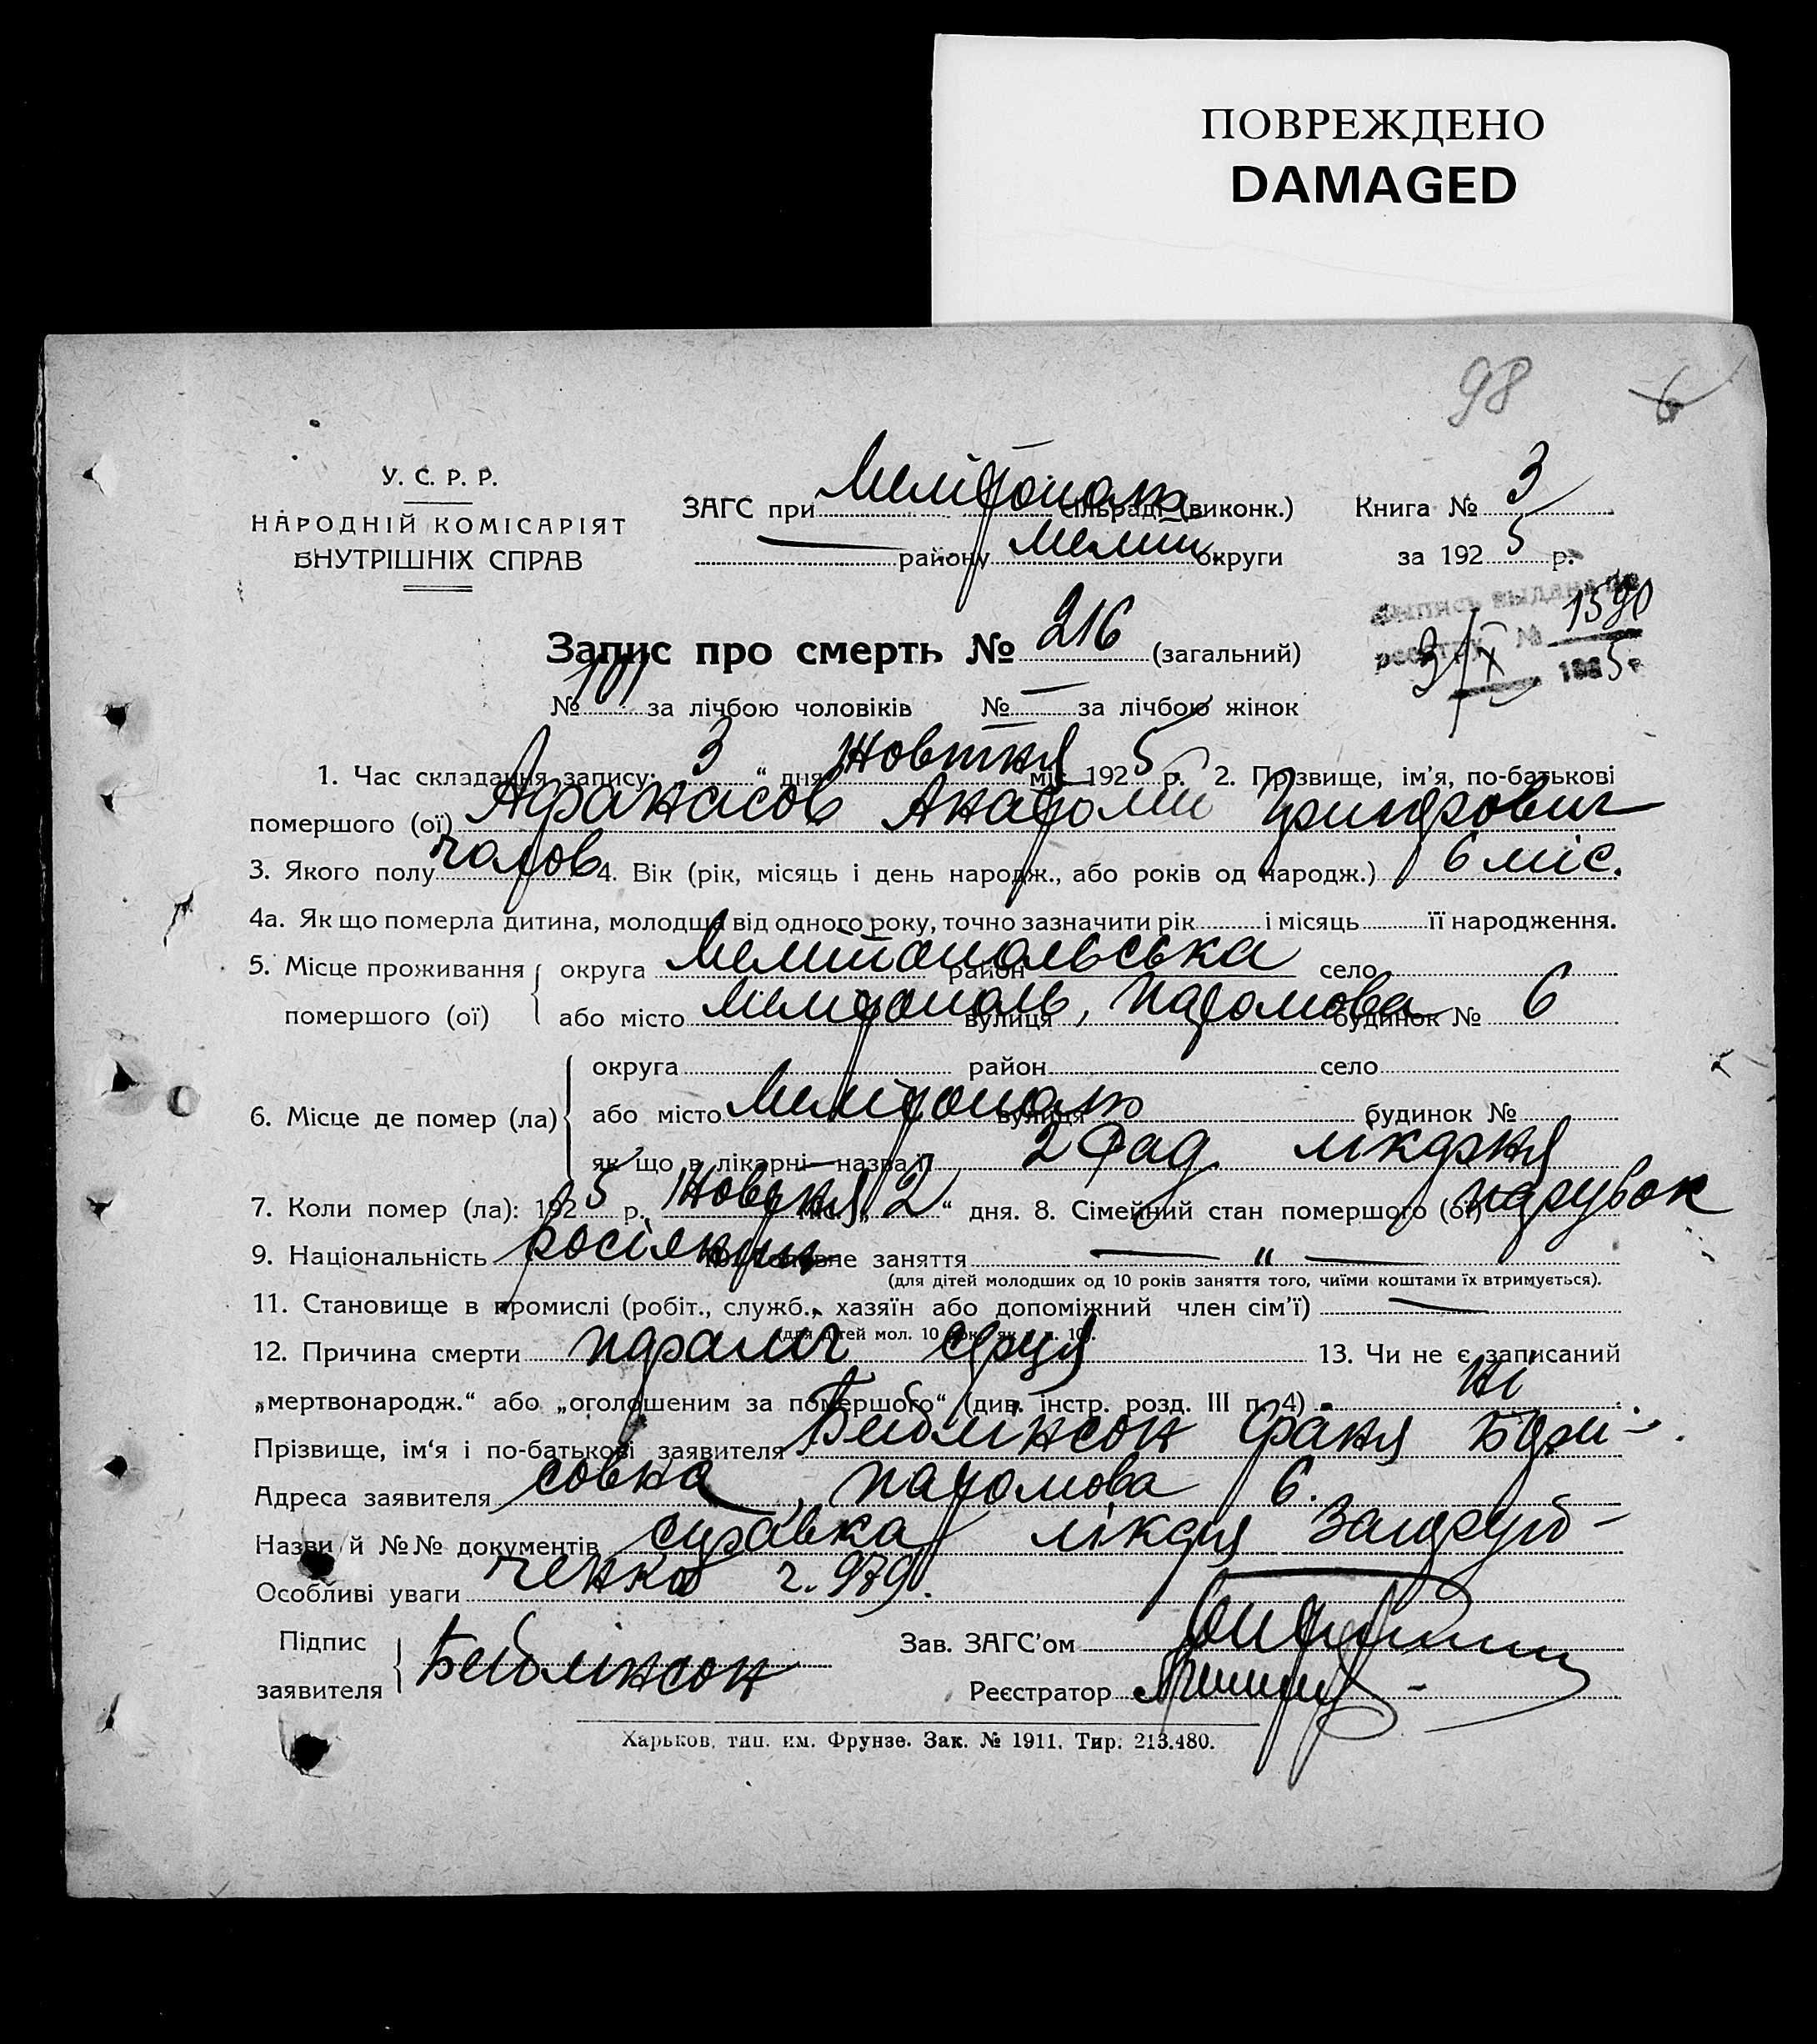 ПОВРЕЖДЕНО
DAMAGED
98
6
У. С. Р. Р.
НАРОДНІЙ КОМІСАРІЯТ
ВНУТРІШНІХ СПРАВ
ЗАГС при Мелітополь сільраді (виконк.)
району Мелит. округи
Книга № 3
за 1925 р.
выпись выдана по
реестру № 1590
3/X 1925 р.
Запис про смерть № 216 (загальний)
№ 101 за лічбою чоловіків № — за лічбою жінок
1. Час складання запису: 3 “ дня Жовтня міс. 1925 р. 2. Прізвище, ім’я, по-батькові
помершого (ої) Афанасов Анатолій
3. Якого полу чолов 4. Вік (рік, місяць і день народж., або років од народж.) 6 міс.
4а. Як що померла дитина, молодша від одного року, точно зазначити рік і місяць її народження.
5. Місце проживання округа Мелитопольська район село
помершого (ої) або місто Мелитополь, вулиця будинок № 6
округа район село
6. Місце де померр (ла) або місто Мелітополь вулиця будинок №
як що в лікарні—назва її 2 Рад. лікарня
7. Коли помер (ла): 1925 р. Жовтня міс. „ 2 “ дня. 8. Сімейний стан помершого (ої) парубок
9. Національність росіянин 10. Головне заняття — “ —
(для дітей молодших од 10 років заняття того, чиїми коштами їх втримується).
11. Становище в промислі (робіт., служб., хазяїн або допоміжний член сім’ї) —
(для дітей мол. 10 рок. як в п. 10).
12. Причина смерти параліч серця 13. Чи не є записаний
„мертвонародж.“ або „оголошеним за помершого“ (див. інстр. розд. III п. 4) Ні
Прізвище, ім‘я і по-батькові заявителя Бейлінсон Фаня Бори-
Адреса заявителя совна, 6.
Назви й №№ документів справка лікаря
Особливі уваги ченко ч. 979.
Підпис
заявителя Бейлінсон
Зав. ЗАГС’ом
Реєстратор
Харьков, тип. им. Фрунзе. Зак. № 1911. Тир. 213.480.